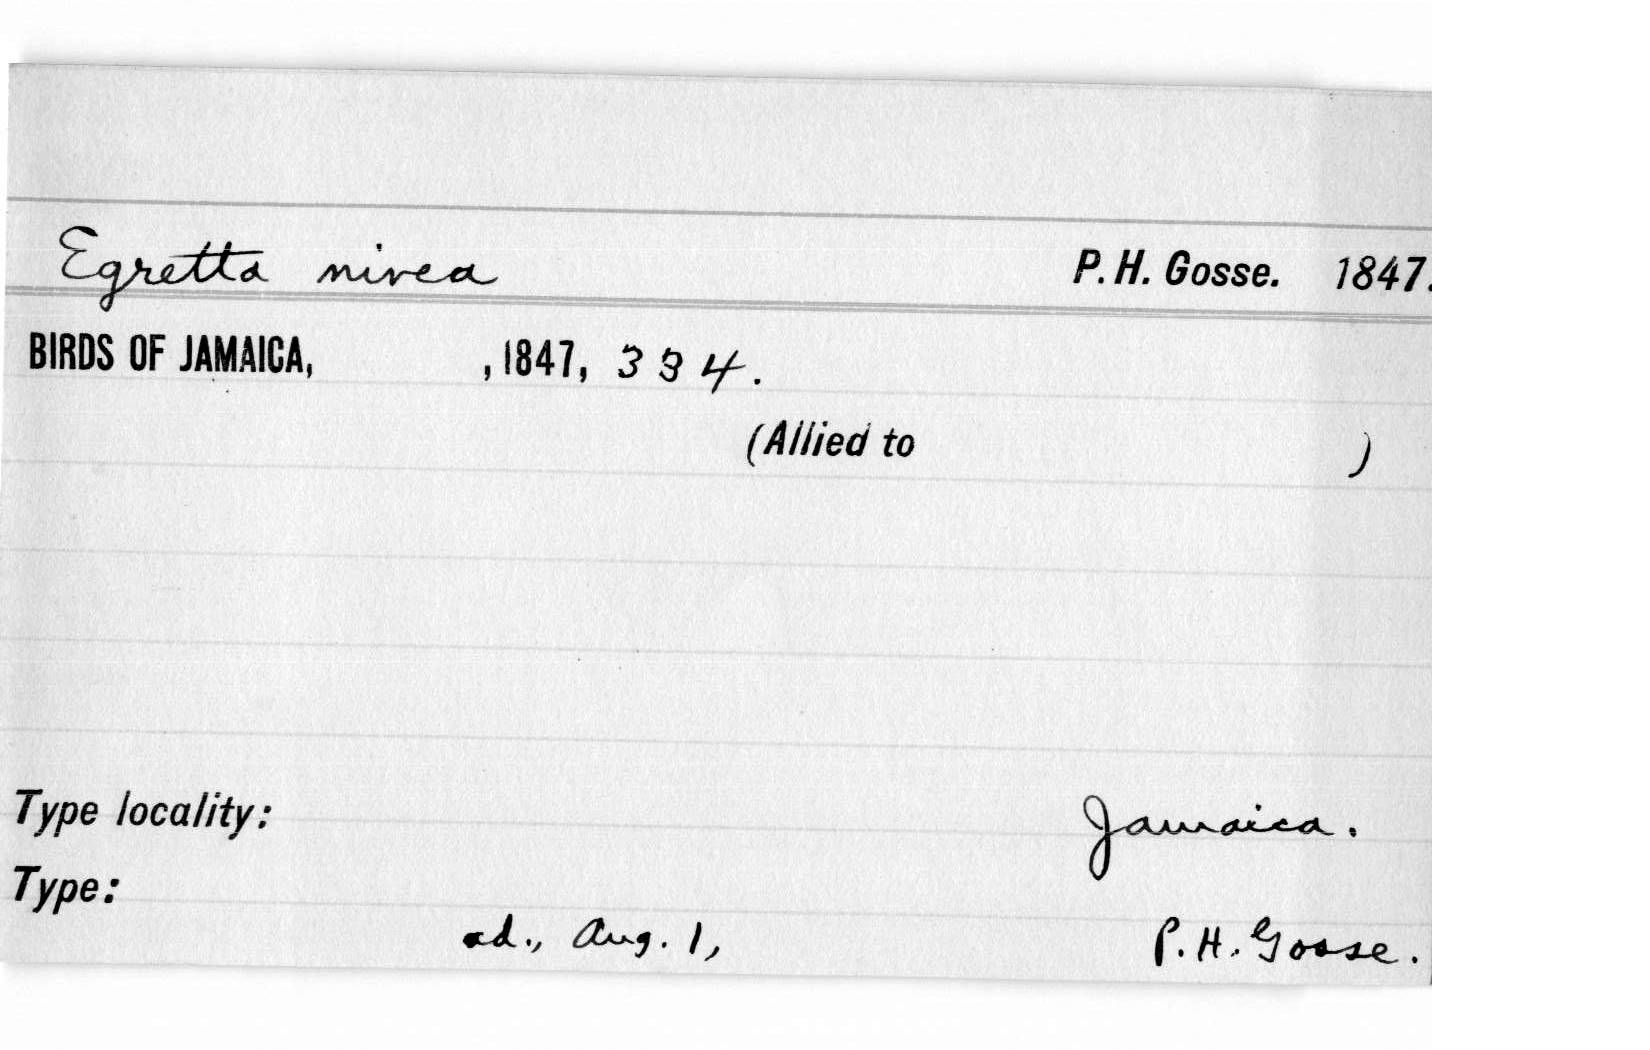 Egretta nivea P. H. Gosse. 1847.
BIRDS OF JAMAICA, , 1847, 334.
(Allied to )
Type locality: Jamaica.
Type:
ad., Aug. 1, P. H. Gosse.